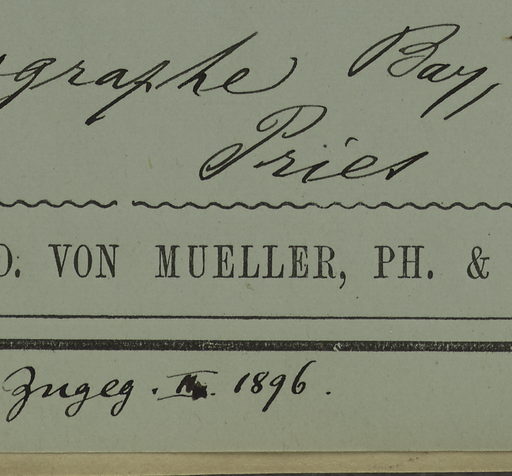 ographe Bay,
Pries
D. VON MUELLER, PH. &
Zugeg. 1896.